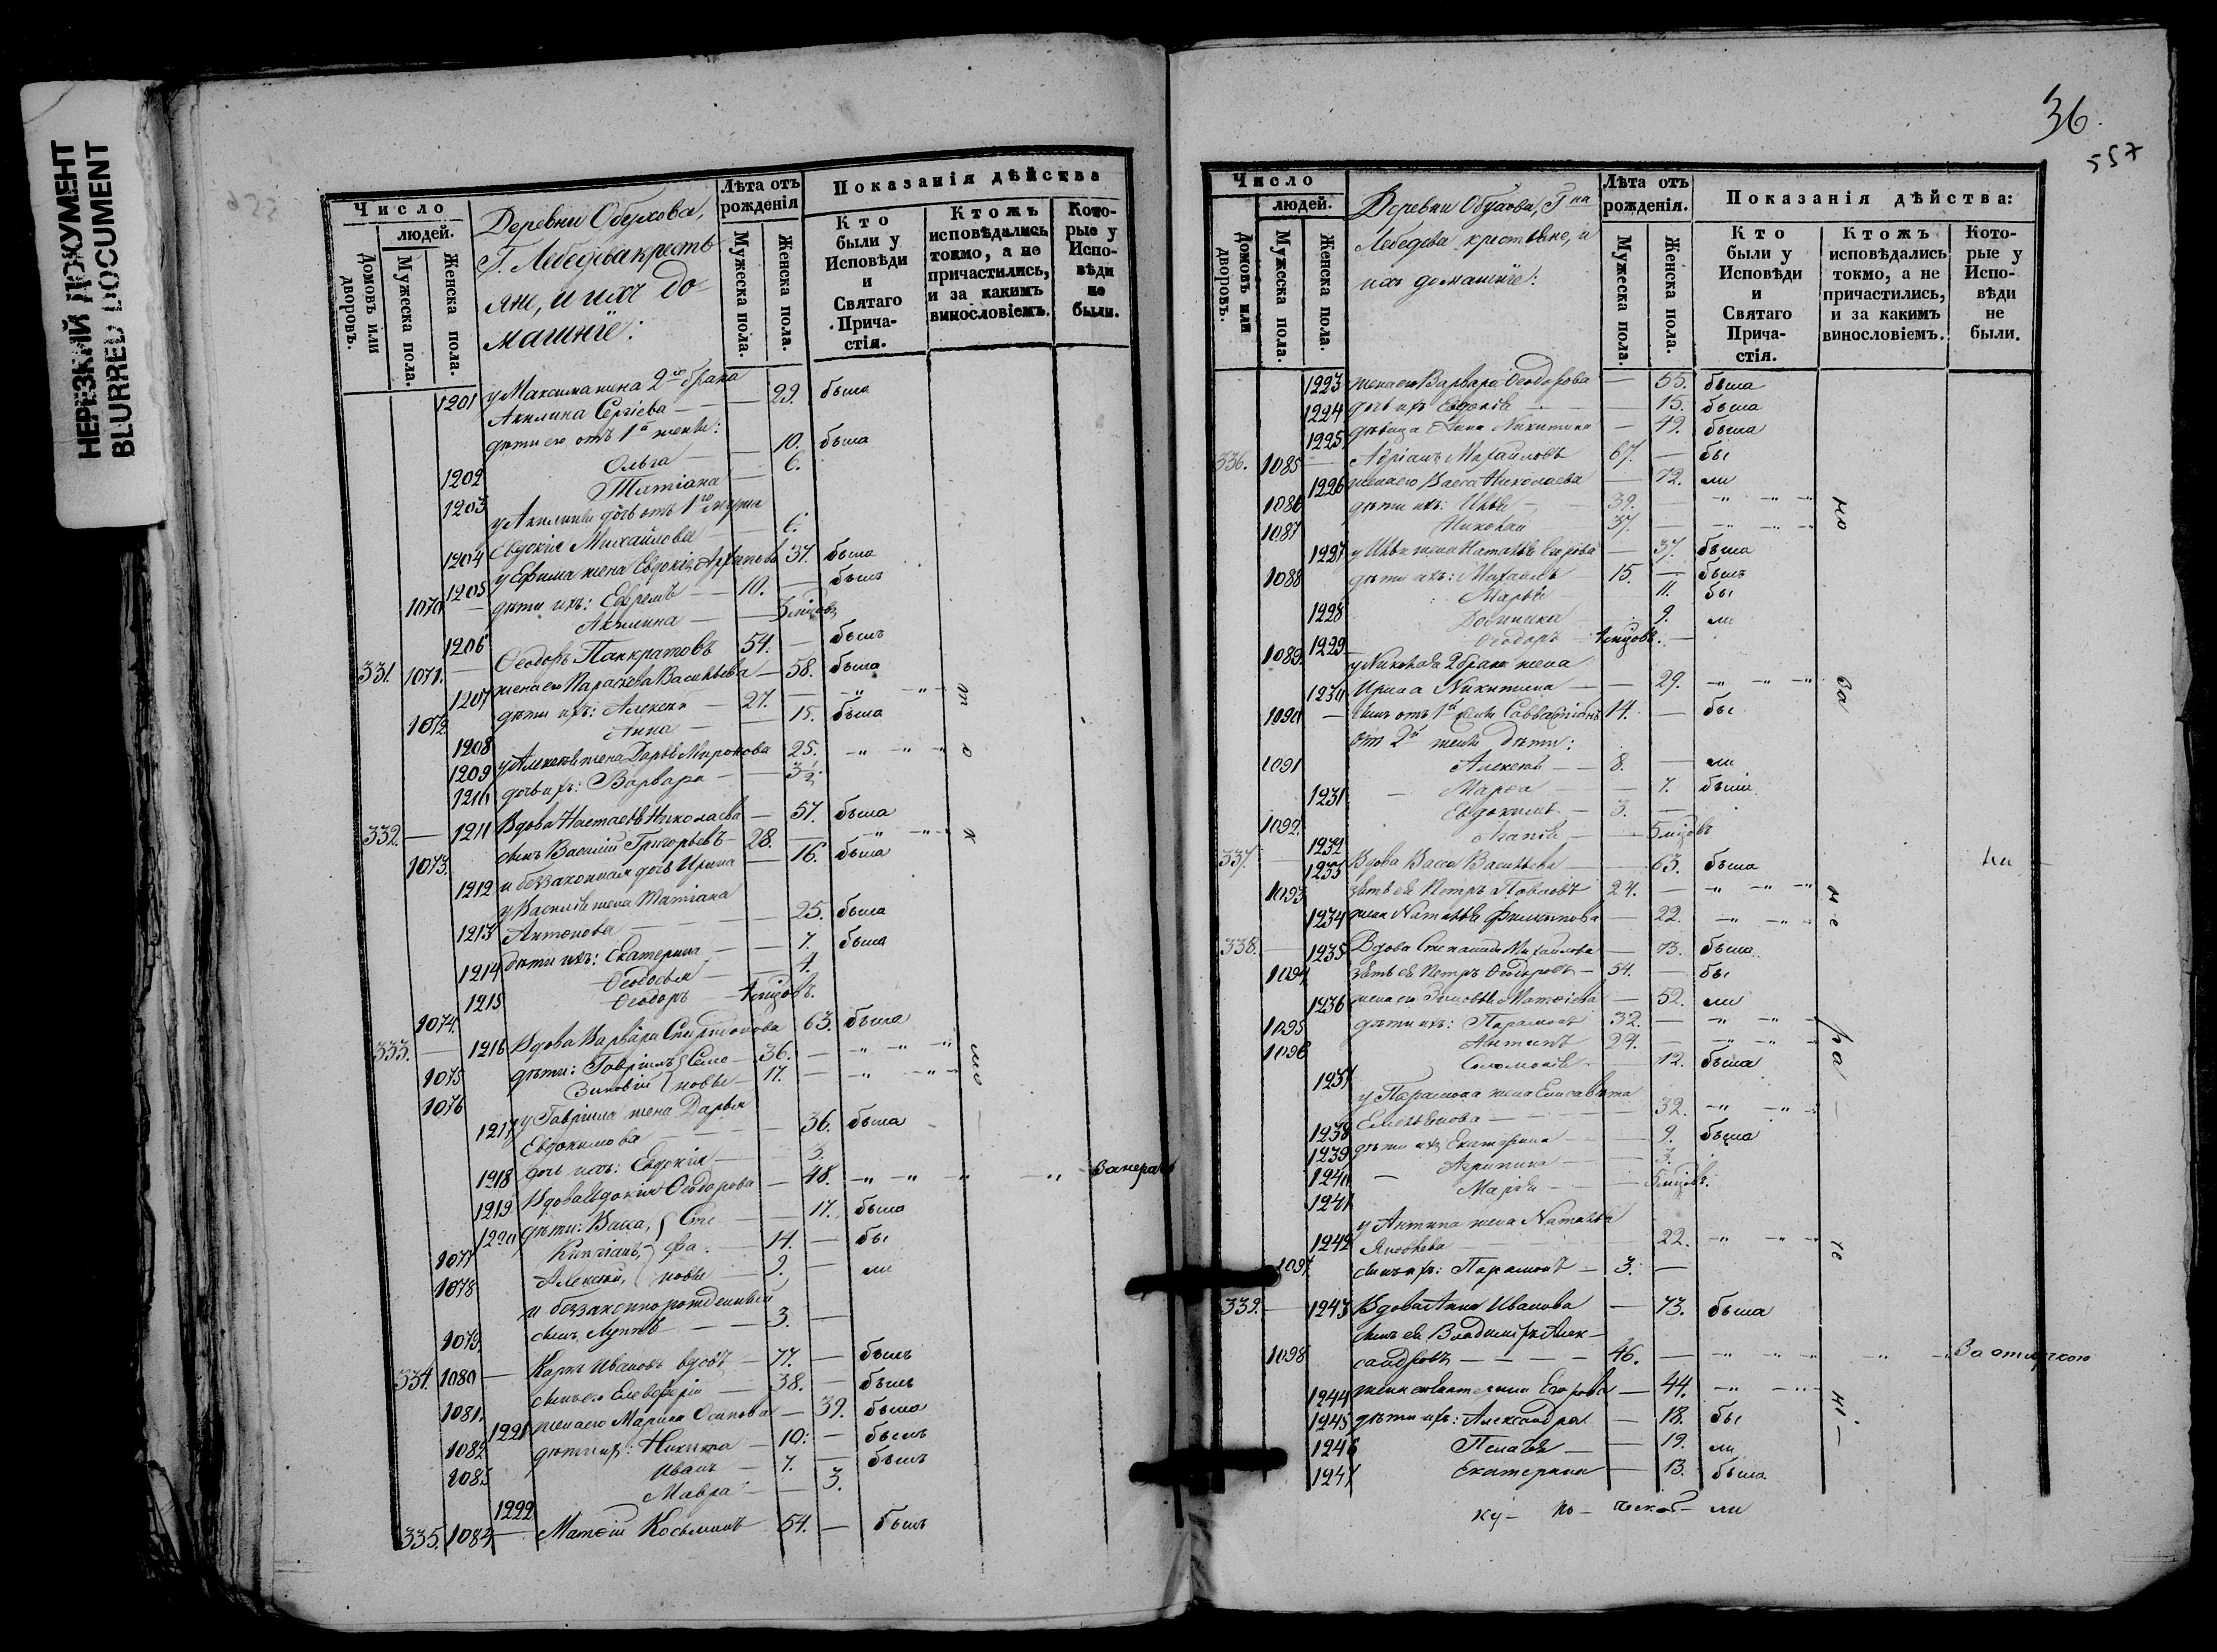 НЕРЕЗКИЙ ДОКУМЕНТ
BLURRED DOCUMENT
Число
людей.
Домовъ или дворовъ.
Мужеска пола.
Женска пола.
Деревни Обухова,
Г. Лебедева кресть
яне, и ихъ до
машніе:
Лѣта отъ рожденія
Мужеска пола.
Женска пола.
Показанія дѣйства
Кто были у Исповѣди и Святаго Причастія.
Ктожъ исповѣдались токмо, а не причастились, и за какимъ винословіемъ.
Кото-рые у Испо-вѣди не были.
у Максима жена 2го брака
1201 Акилина Сергіева — — 29. была
дѣти его отъ 1й жены:
1202 Ольга — — 10. была
1203 Татіана — 6.
у Акилины дочь отъ 1го мужа
1204 Евдокія Михайлова — 6.
1205 у Ефима жена Евдокія 37. была
1070 — дѣти ихъ: Ефремъ — 10. — былъ
1206 Акилина — — 3 мцовъ
331. 1071. — Ѳеодоръ Панкратовъ 54. — былъ
1207 жена его Параскева Васильева — 58. была
1072 дѣти ихъ: Алексѣй — 27. — -"- -"-
1208 Анна — — 15. была
1209 у Алексѣя жена Дарья Миронова 25. -"- -"-
1210 дочь ихъ: Варвара — — 3 1/2.
332. — 1211 Вдова Настасья Николаева — 57. была
1073. сынъ Василій Григорьевъ — 28. — -"- -"-
1212 и беззаконная дочь Ирина — 16. была
у Василія жена Татіана
1213 Антонова — — 25. была
1214 дѣти ихъ: Екатерина — — 7. была
1215 Ѳеодосья — 4.
1074. Ѳеодоръ — 4 мцовъ.
333. — 1216 Вдова Варвара Спиридонова 63. была
1075 дѣти: Гавріилъ } Симо — 36. — -"- -"-
1076 Зиновій } новы — 17. — -"- -"-
у Гавріила жена Дарья
1217 Евдокимова — — 36. была
1218 дочь ихъ: Евдокія — 3.
1219 Вдова Евдокія Ѳеодорова — 48. -"- -"-
1220 дѣти: Васса, } Сте — — 17. была
1077 Кипріанъ, } фа — 14. — бы
1078 Алексѣй, } новы — 9. — ли
и беззаконнорожденный
1079. сынъ — — 3. —
334. 1080 — Карпъ Ивановъ вдовъ — 77. — былъ
1081. сынъ его Елевферій — 38. — былъ
1221 жена его Марина Осипова — 39. была
1082 дѣти ихъ: Никита — 10. — былъ
1083 Иванъ — 7. — былъ
1222 Мавра — — 3.
335. 1084 — Матѳій Косьминъ 54. — былъ
36.
557
Число
людей.
Домовъ или дворовъ.
Мужеска пола.
Женска пола.
Деревни Обухова, Г на
Лебедева крестьяне, и
ихъ домашніе:
Лѣта отъ рожденія.
Мужеска пола.
Женска пола.
Показанія дѣйства:
Кто были у Исповѣди и Святаго Прича-стія.
Ктожъ исповѣдались токмо, а не причастились, и за какимъ винословіемъ.
Кото-рые у Испо-вѣди не были.
1223 жена его Варвара Ѳеодорова — 55. была
1224 дочь ихъ Евдокія — — 15. была
1225 дѣвица Анна Никитина — 49. была
336. 1085 — Адріанъ Михайловъ 67. — бы
1226 жена его Васса Николаева — 72. ли
1086 дѣти ихъ: Илья — 39. — -"- -"-
1087 Николай 37. — -"- -"-
1227 у Ильи жена Наталья — 37. была
1088 дѣти ихъ: Михаилъ — 15. — былъ
1228 Марья — 11. бы
1229 Домника — 9. ли
1089. Ѳеодоръ 4 мцовъ. —
у Николая 2 брака жена
1230 Ирина Никитина — — 29. -"- -"-
1090 — сынъ отъ 1й жены 14. — бы
отъ 2й жены дѣти:
1091 Алексѣй — 8. — ли
1231 Марѳа — — 7. были
1092. Евдокимъ — 3. —
1232 — 5 мцовъ
337. — 1233 Вдова Васса Васильева — 63. была
1093 зять ея Петръ Павловъ 24. — -"- -"-
1234 жена Наталья Филиппова — 22. -"- -"-
338. — 1235 Вдова Степанида Михайлова — 73. была
1094 зять ея Петръ Ѳеодоровъ — 54. — бы
1236 жена его Зиновья Матѳіева — 52. ли
1095 дѣти ихъ: Парамонъ 32. — -"- -"-
1096 Антипъ 24. — -"- -"-
1237 Соломонія — 12. была
у Парамона жена Елисавета
1238 Емельянова — — 32. -"- -"-
1239 дѣти ихъ Екатерина — — 9. была
1240 Агрипина — — 3.
1241 Марья — — 5 мцовъ.
у Антипа жена Наталья
1242 Яковлева — — 22. -"- -"-
1097. сынъ ихъ: Парамонъ — 3. —
339. — 1243 Вдова Анна Иванова — 73. была
сынъ ея Владиміръ Алек-
1098 сандровъ — — — 46. — -"- -"- За отлучкою
1244 жена его Екатерина Егорова — 44. -"- -"-
1245 дѣти ихъ: Александра — 18. бы
1246 Пелагѣя — — 19. ли
1247 Екатерина — 13. была